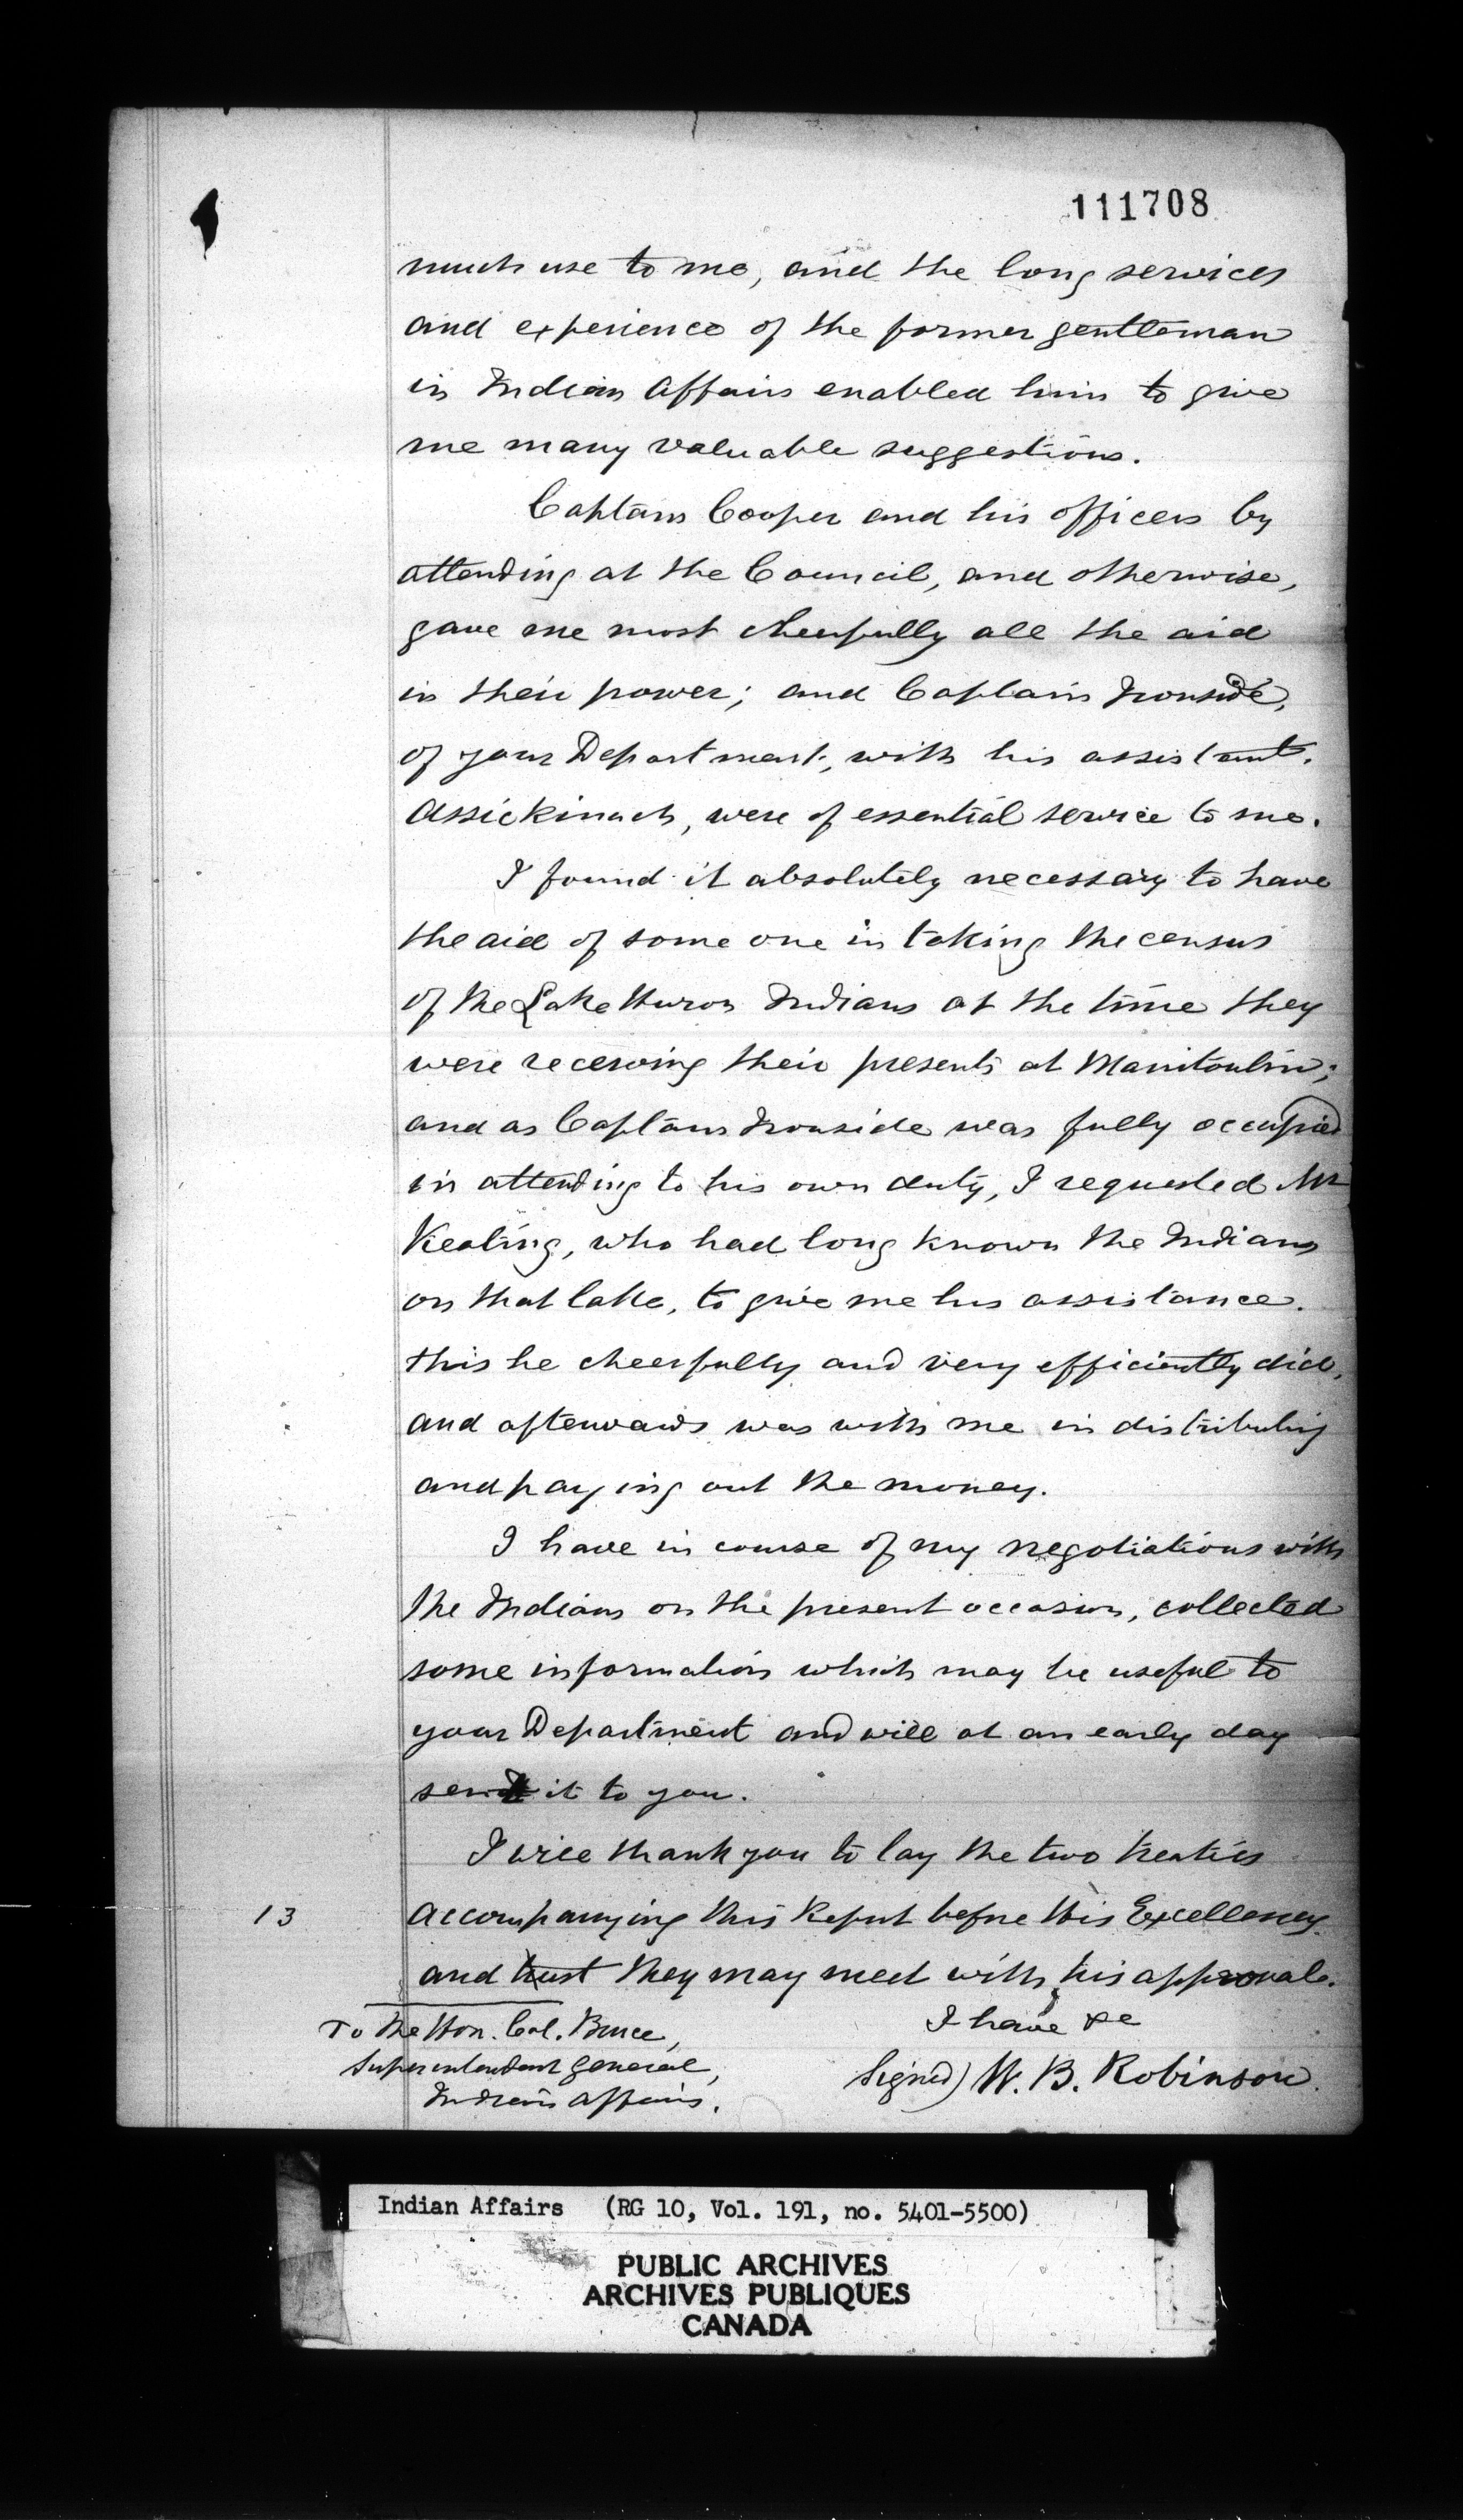 111708
much use to me, and the long services
and experience of the former gentleman
in Indian Affairs enabled him to give
me many valuable suggestions.
Captain Cooper and his officers by
attending at the Council, and otherwise,
gave me most cheerfully all the aid
in their power; and Captain Ironside,
of your Department, with his assistant,
Assickinach, were of essential service to me.
I found it absolutely necessary to have
the aid of some one in taking the census
of the Lake Huron Indians at the time they
were receiving their presents at Manitoulin;
and as Captain Ironside was fully occupied
in attending to his own duty, I requested Mr
Keating, who had long known the Indians
on that lake, to give me his assistance.
this he cheerfully and very efficiently did,
and afterwards was with me in distributing
and paying out the money.
I have in course of my negotiations with
the Indians on the present occasion, collected
some information which may be useful to
your Department and will at an early day
send it to you.
I will thank you to lay the two treaties
13 accompanying this Report before His Excellency
and trust they may meet with his approval.
I have &c
To the Hon. Col. Bruce,
Superintendent General,
Indian Affairs.
Signed) W. B. Robinson.
Indian Affairs (RG 10, Vol. 191, no. 5401-5500)
PUBLIC ARCHIVES
ARCHIVES PUBLIQUES
CANADA